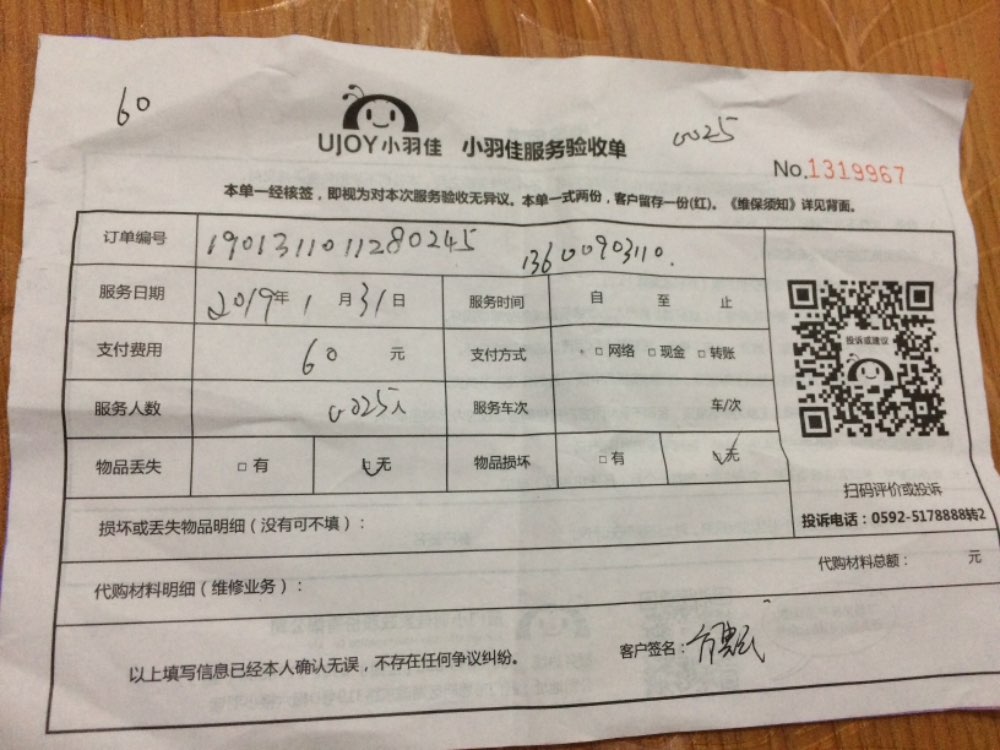 60
UJOY小羽佳 小羽佳服务验收单
0025
No.1319967
本单一经核签，即视为对本次服务验收无异议。本单一式两份，客户留存一份(红)。《维保须知》详见背面。
订单编号 1901311011280245 13600903110.
服务日期 2019年 1 月 31 日 服务时间 自 至 止
支付费用 60 元 支付方式 □网络 □现金 □转账
投诉或建议
服务人数 0025人 服务车次 车/次
物品丢失 □有 □无 物品损坏 □有 □无
扫码评价或投诉
投诉电话：0592-5178888转2
损坏或丢失物品明细（没有可不填）：
代购材料明细（维修业务）： 代购材料总额： 元
以上填写信息已经本人确认无误，不存在任何争议纠纷。 客户签名：